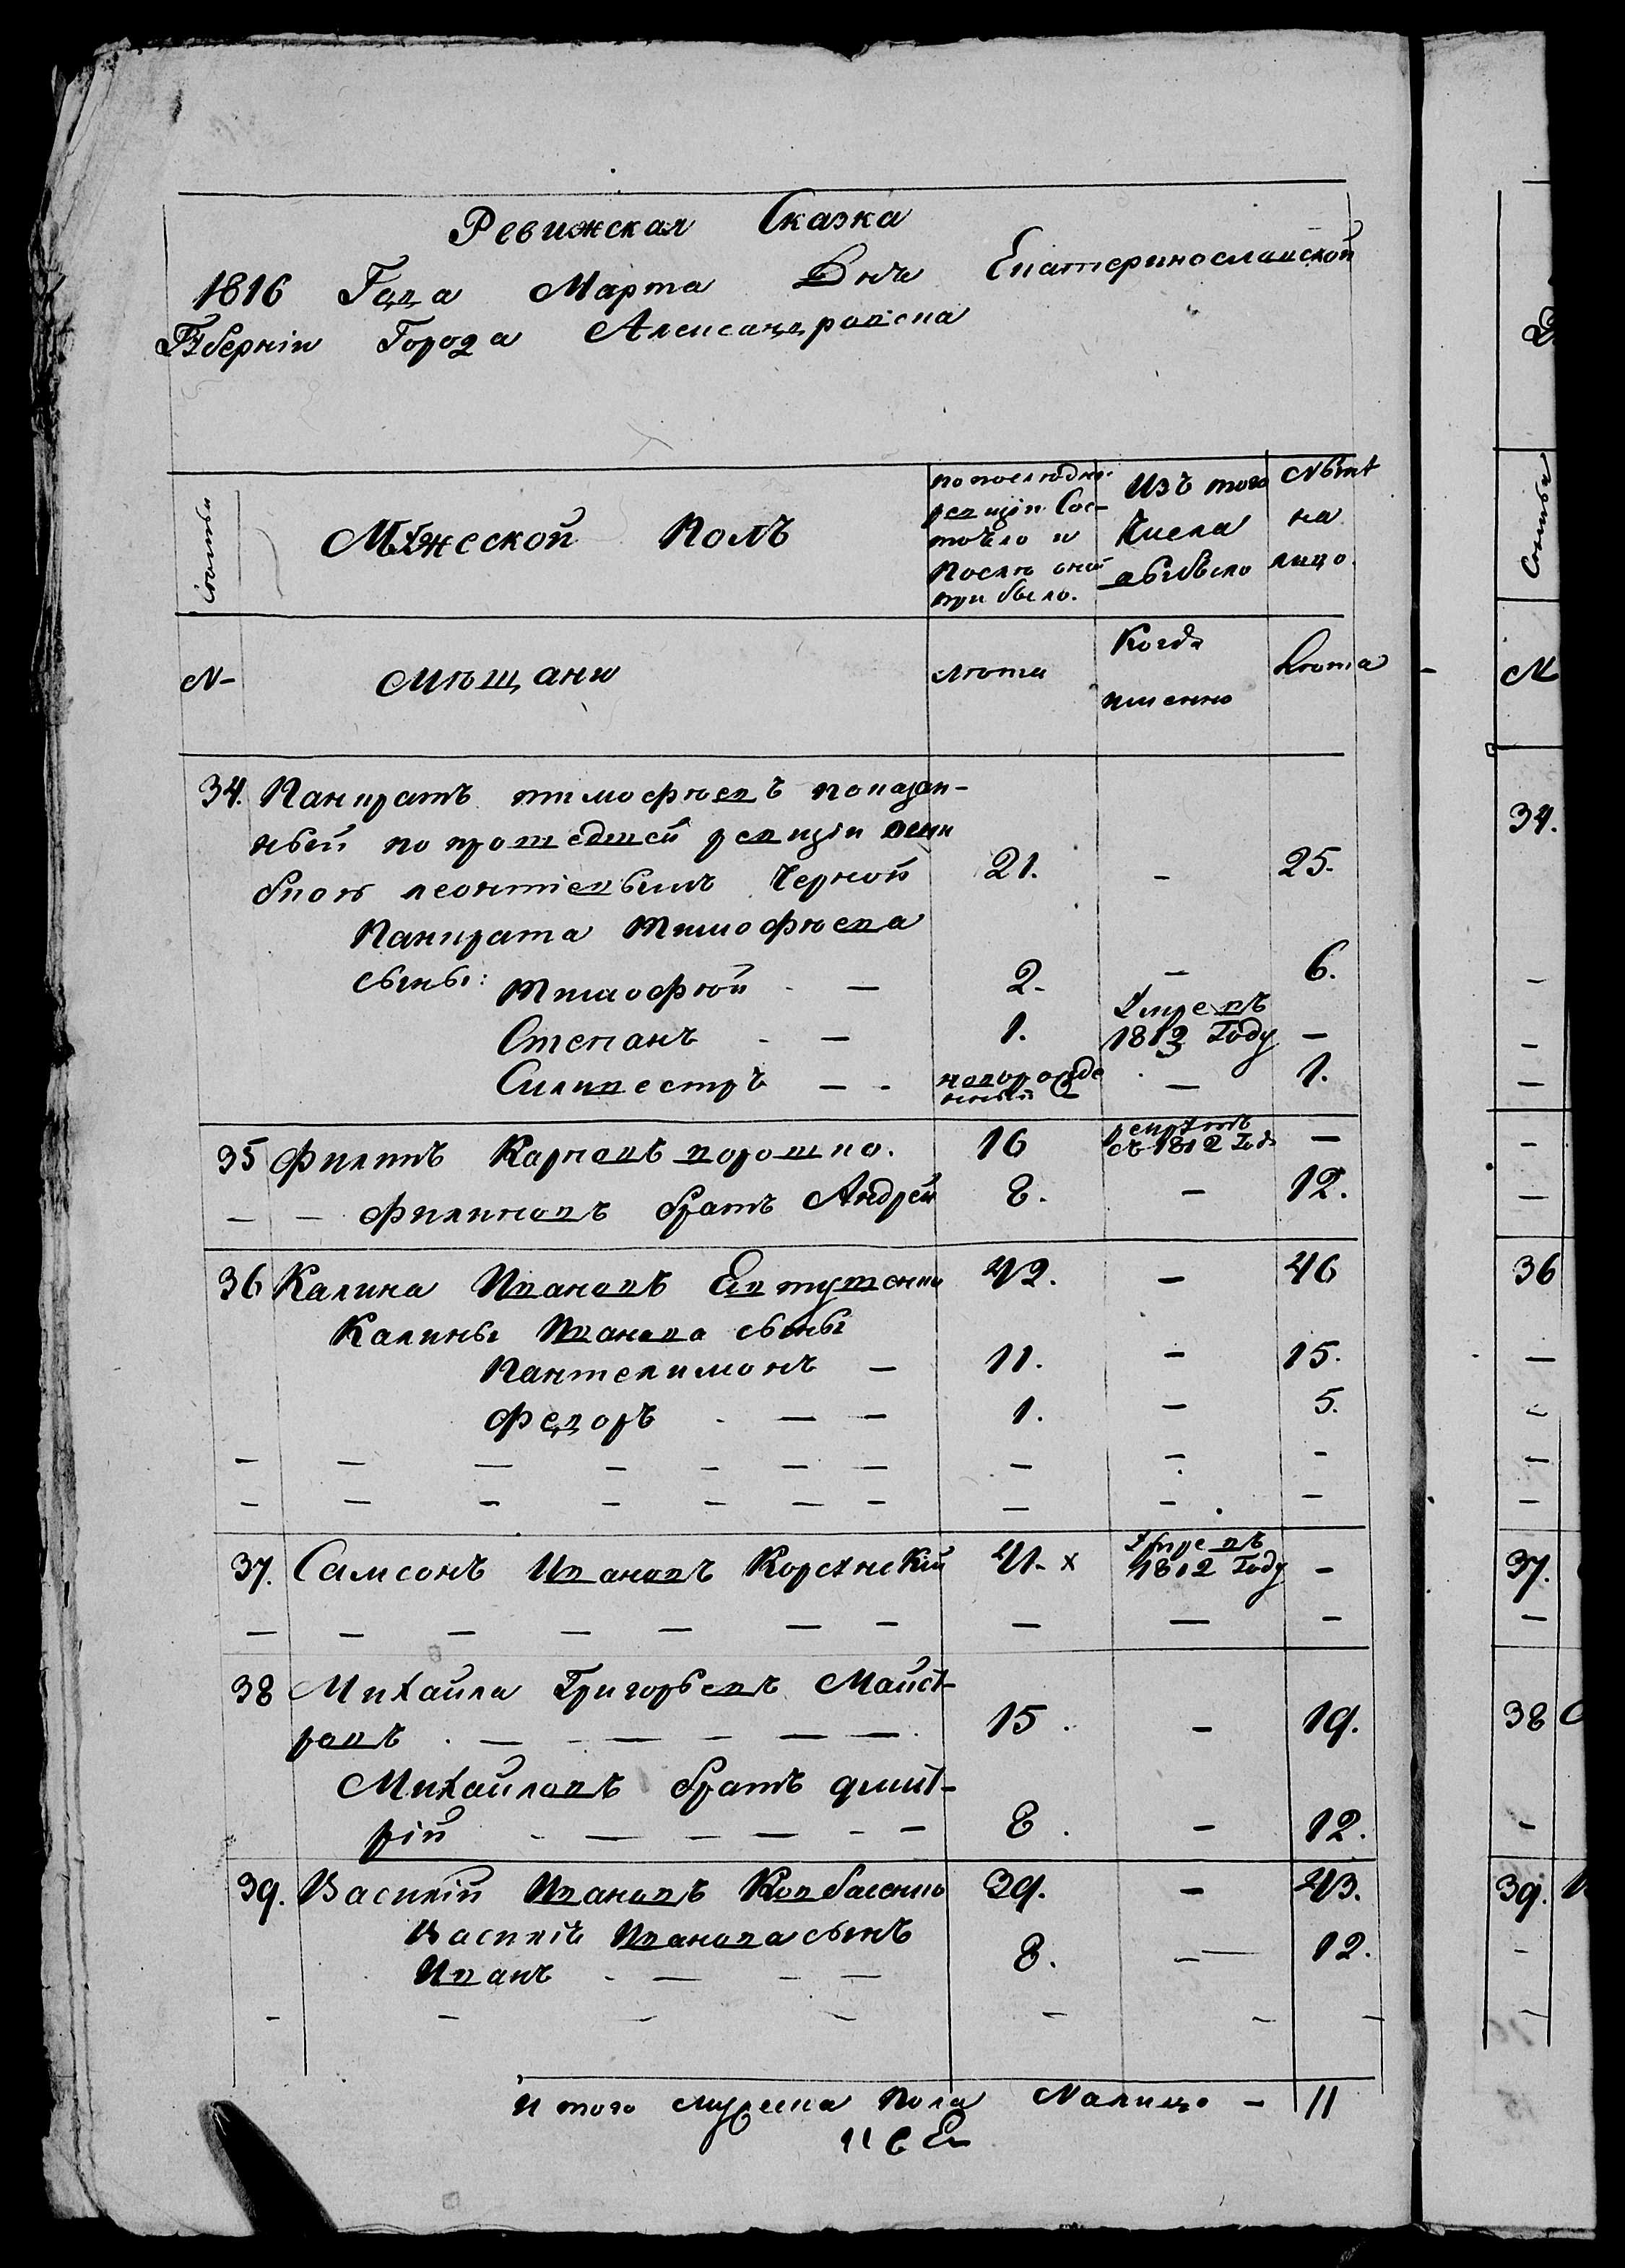 Ревижская Сказка
1816 Года Марта Дня Екатеринославской
Губерніи Города Александровска
Семьи
Мужеской Полъ
по последней ревизіи Состояло и после оной прибыло.
Изъ того числа выбыло
Ныне на лицо.
№
Мѣщане
лѣта
Когда именно
лѣта
34. Панкратъ тимофѣевъ показан-
ный по прошедшей ревизіи
леонтіевымъ Черной 21. – 25.
Панкрата Тимофѣева
сыны: Тимофѣй – 2. – 6.
Степанъ – 1. Умре въ 1813 Году –
Силивестръ – – новорожденный – 1.
35 Филипъ Карповъ порошко. 16 рекрутъ съ 1812 Года –
– – Филиповъ братъ Андрей 8. – 12.
36 Калина Ивановъ Евтушенко 42. – 46
Калины Иванова сыны
Пантелимонъ – 11. – 15.
Федоръ – – 1. – 5.
37. Самсонъ Ивановъ Корсунскій 41. х Умре въ 1812 Году –
38 Михайла Григорьевъ Майст-
ровъ – 15. – 19.
Михайловъ братъ дмит-
рій – 8. – 12.
39. Василій Ивановъ Ковбасенко 39. – 43.
Василія Иванова сынъ
Иванъ – 8. – 12.
Итого мужеска Пола Налицо – 11
Семьи
№
34.
36
37.
38
39.